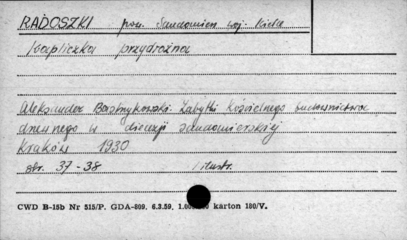 RADOSZKI pow. Sandomierz woj. Kielce
kapliczka przydrożna
Aleksander Bastrzykowski. Zabytki kościelnego budownictwa
drewnego w diecezji sandomierskiej
Kraków 1930
str. 37-38 ilustr.
CWD B-15b Nr 515/P. GDA-809. 6.3.59, karton 180/V.